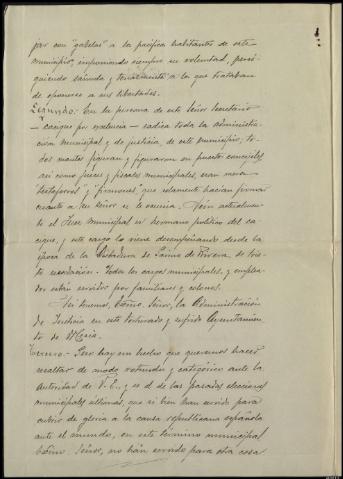 jar con "gabelas" a la pacífica habitantes de este
municipio, imponiendo siempre su voluntad, persi-
guiendo sañuda y tenazmente a los que trataban
de oponerse a sus liberdades.
Segundo:- En la persona de este Señor Secretario
- cacique por excelencia - radica toda la Administra-
ción Municipal y de justicia, de este municipio; to-
dos cuantos figuran y figuraron en puestos concejiles
así como jueces y fiscales municipales, eran meros
"testaferros" y "firmones", que solamente hacían firmar
cuanto a su señor se le ocurría. Aún actualmente
el Juez Municipal es hermano político del ca-
cique, y este cargo lo viene desempeñando desde la
época de la Dictadura de Primo de Rivera, de triste
recordación. Todos los cargos municipales, y emplea-
dos están servidos por familiares y colonos.
Así tenemos, Excmo. Señor, la Administración
de Justicia en este torturado y sufrido Ayuntamien-
to de Mesía.
Tercero.- Pero hay un hecho que queremos hacer
resaltar de modo rotundo y categórico ante la
Autoridad de V.E., y es el de las pasadas elecciones
municipales últimas, que si bien han servido para
cubrir de gloria a la causa republicana española
ante el mundo, en este término municipal
Excmo Señor, no han servido para otra cosa